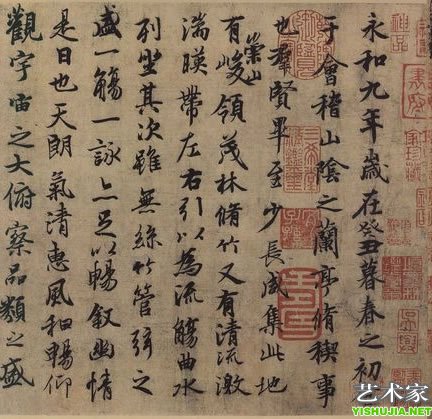 永和九年歲在癸丑暮春之初
于會稽山陰之蘭亭脩稧事
也羣賢畢至少長咸集此地
有崇山峻領茂林脩竹又有清流激
湍暎帶左右引以為流觴曲水
列坐其次雖無絲竹管弦之
盛一觴一詠亦足以暢敘幽情
是日也天朗氣清惠風和暢仰
觀宇宙之大俯察品類之盛
艺术家
YISHUJIA.NET